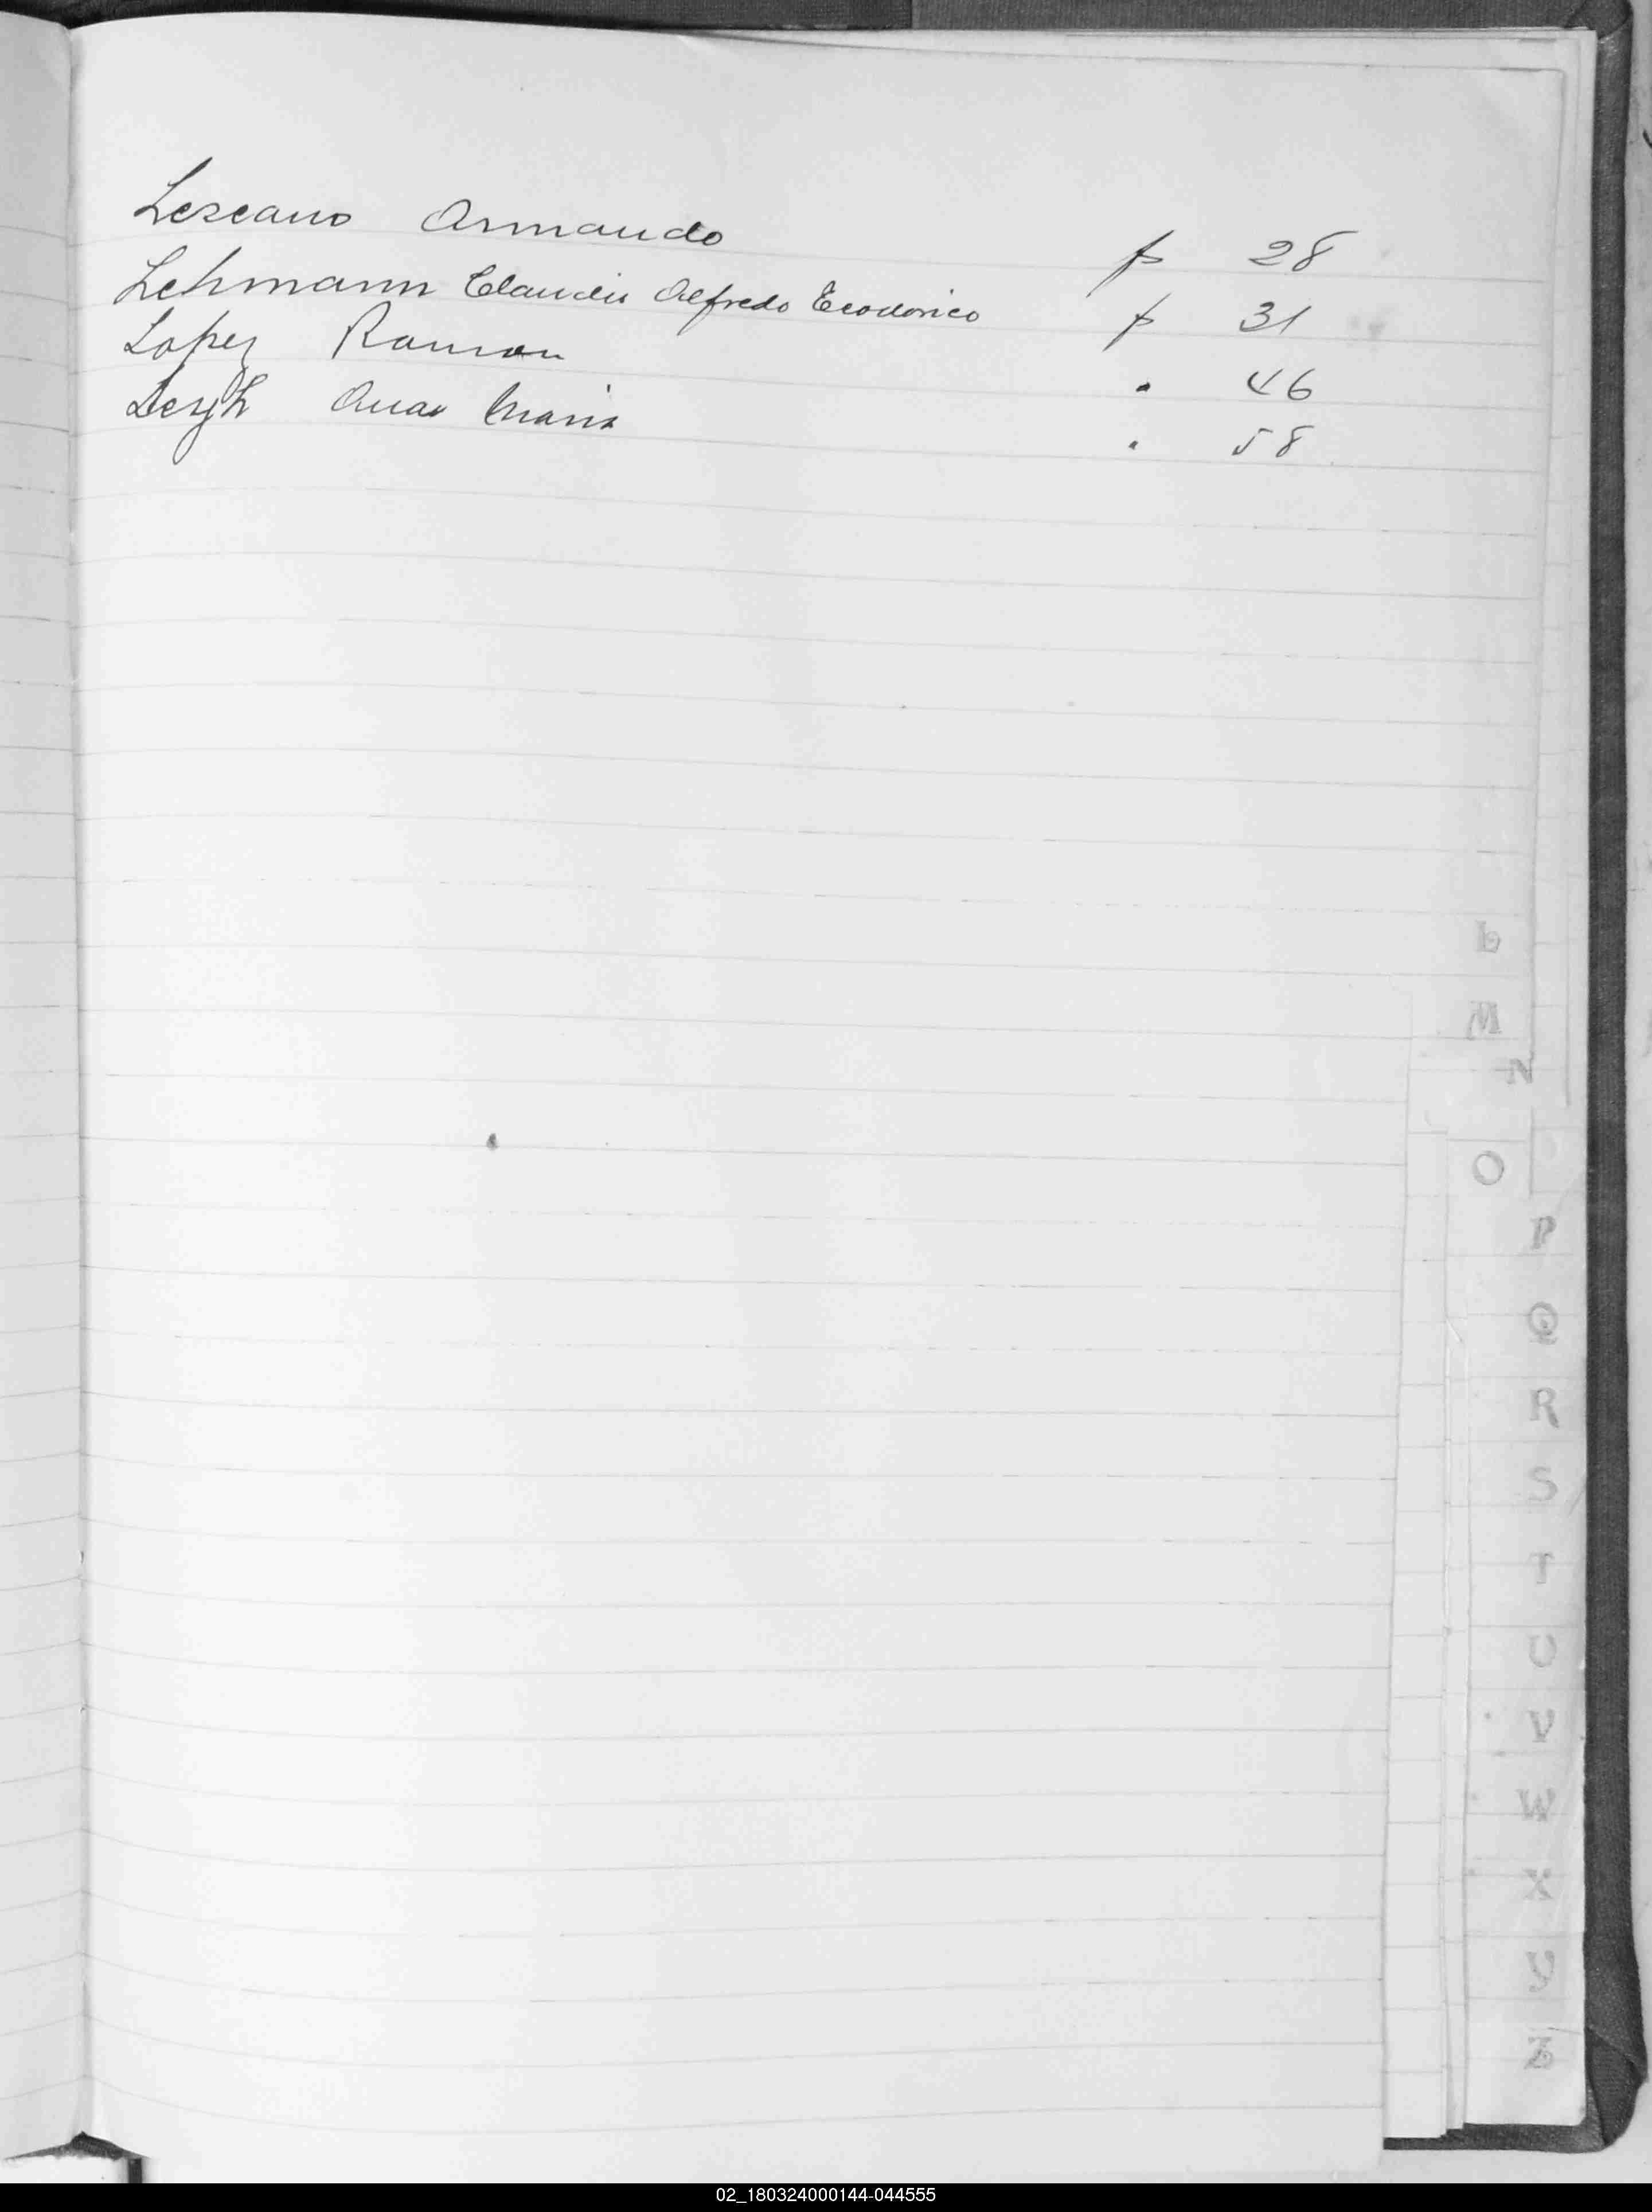 Lescano Armando fs 28
Lehmann Claudio Alfredo Teodorico fs 31
Lopez Ramon " 46
Ana Maria " 58
L
M
N
O
P
Q
R
S
T
U
V
W
X
Y
Z
02_180324000144-044555